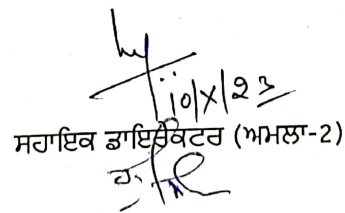 10/X/23
ਸਹਾਇਕ ਡਾਇਰੈਕਟਰ (ਅਮਲਾ-2)